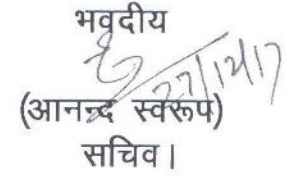 भवदीय
27/12/17
(आनन्द स्वरूप)
सचिव।